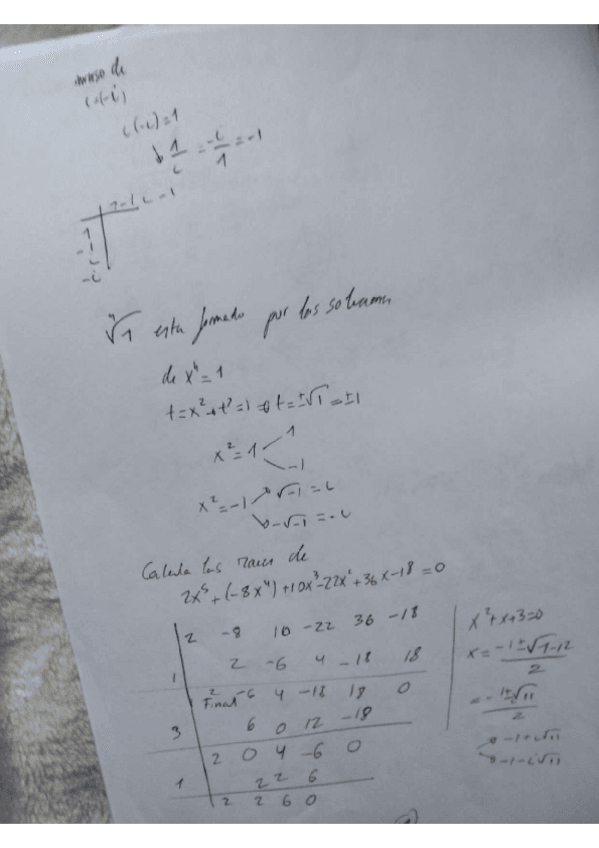 inverso de
i(-i)
i(-i)=1
1/i = -i/1 = -1
1 -1 i -i
1
-1
i
-i
⁴√1 esta formado por las soluciones
de x⁴=1
t=x² → t²=1 → t=±√1=±1
x²=1 1
-1
x²=-1 √-1=i
-√-1=-i
Calcula las raices de
2x⁵+(-8x⁴)+10x³-22x²+36x-18=0
2 -8 10 -22 36 -18
1 2 -6 4 -18 18
2 -6 4 -18 18 0
Final
3 6 0 12 -18
2 0 4 -6 0
1 2 2 6
2 2 6 0
x²+x+3=0
x=(-1±√1-12)/2
=(-1±√11)/2
-1+i√11
-1-i√11